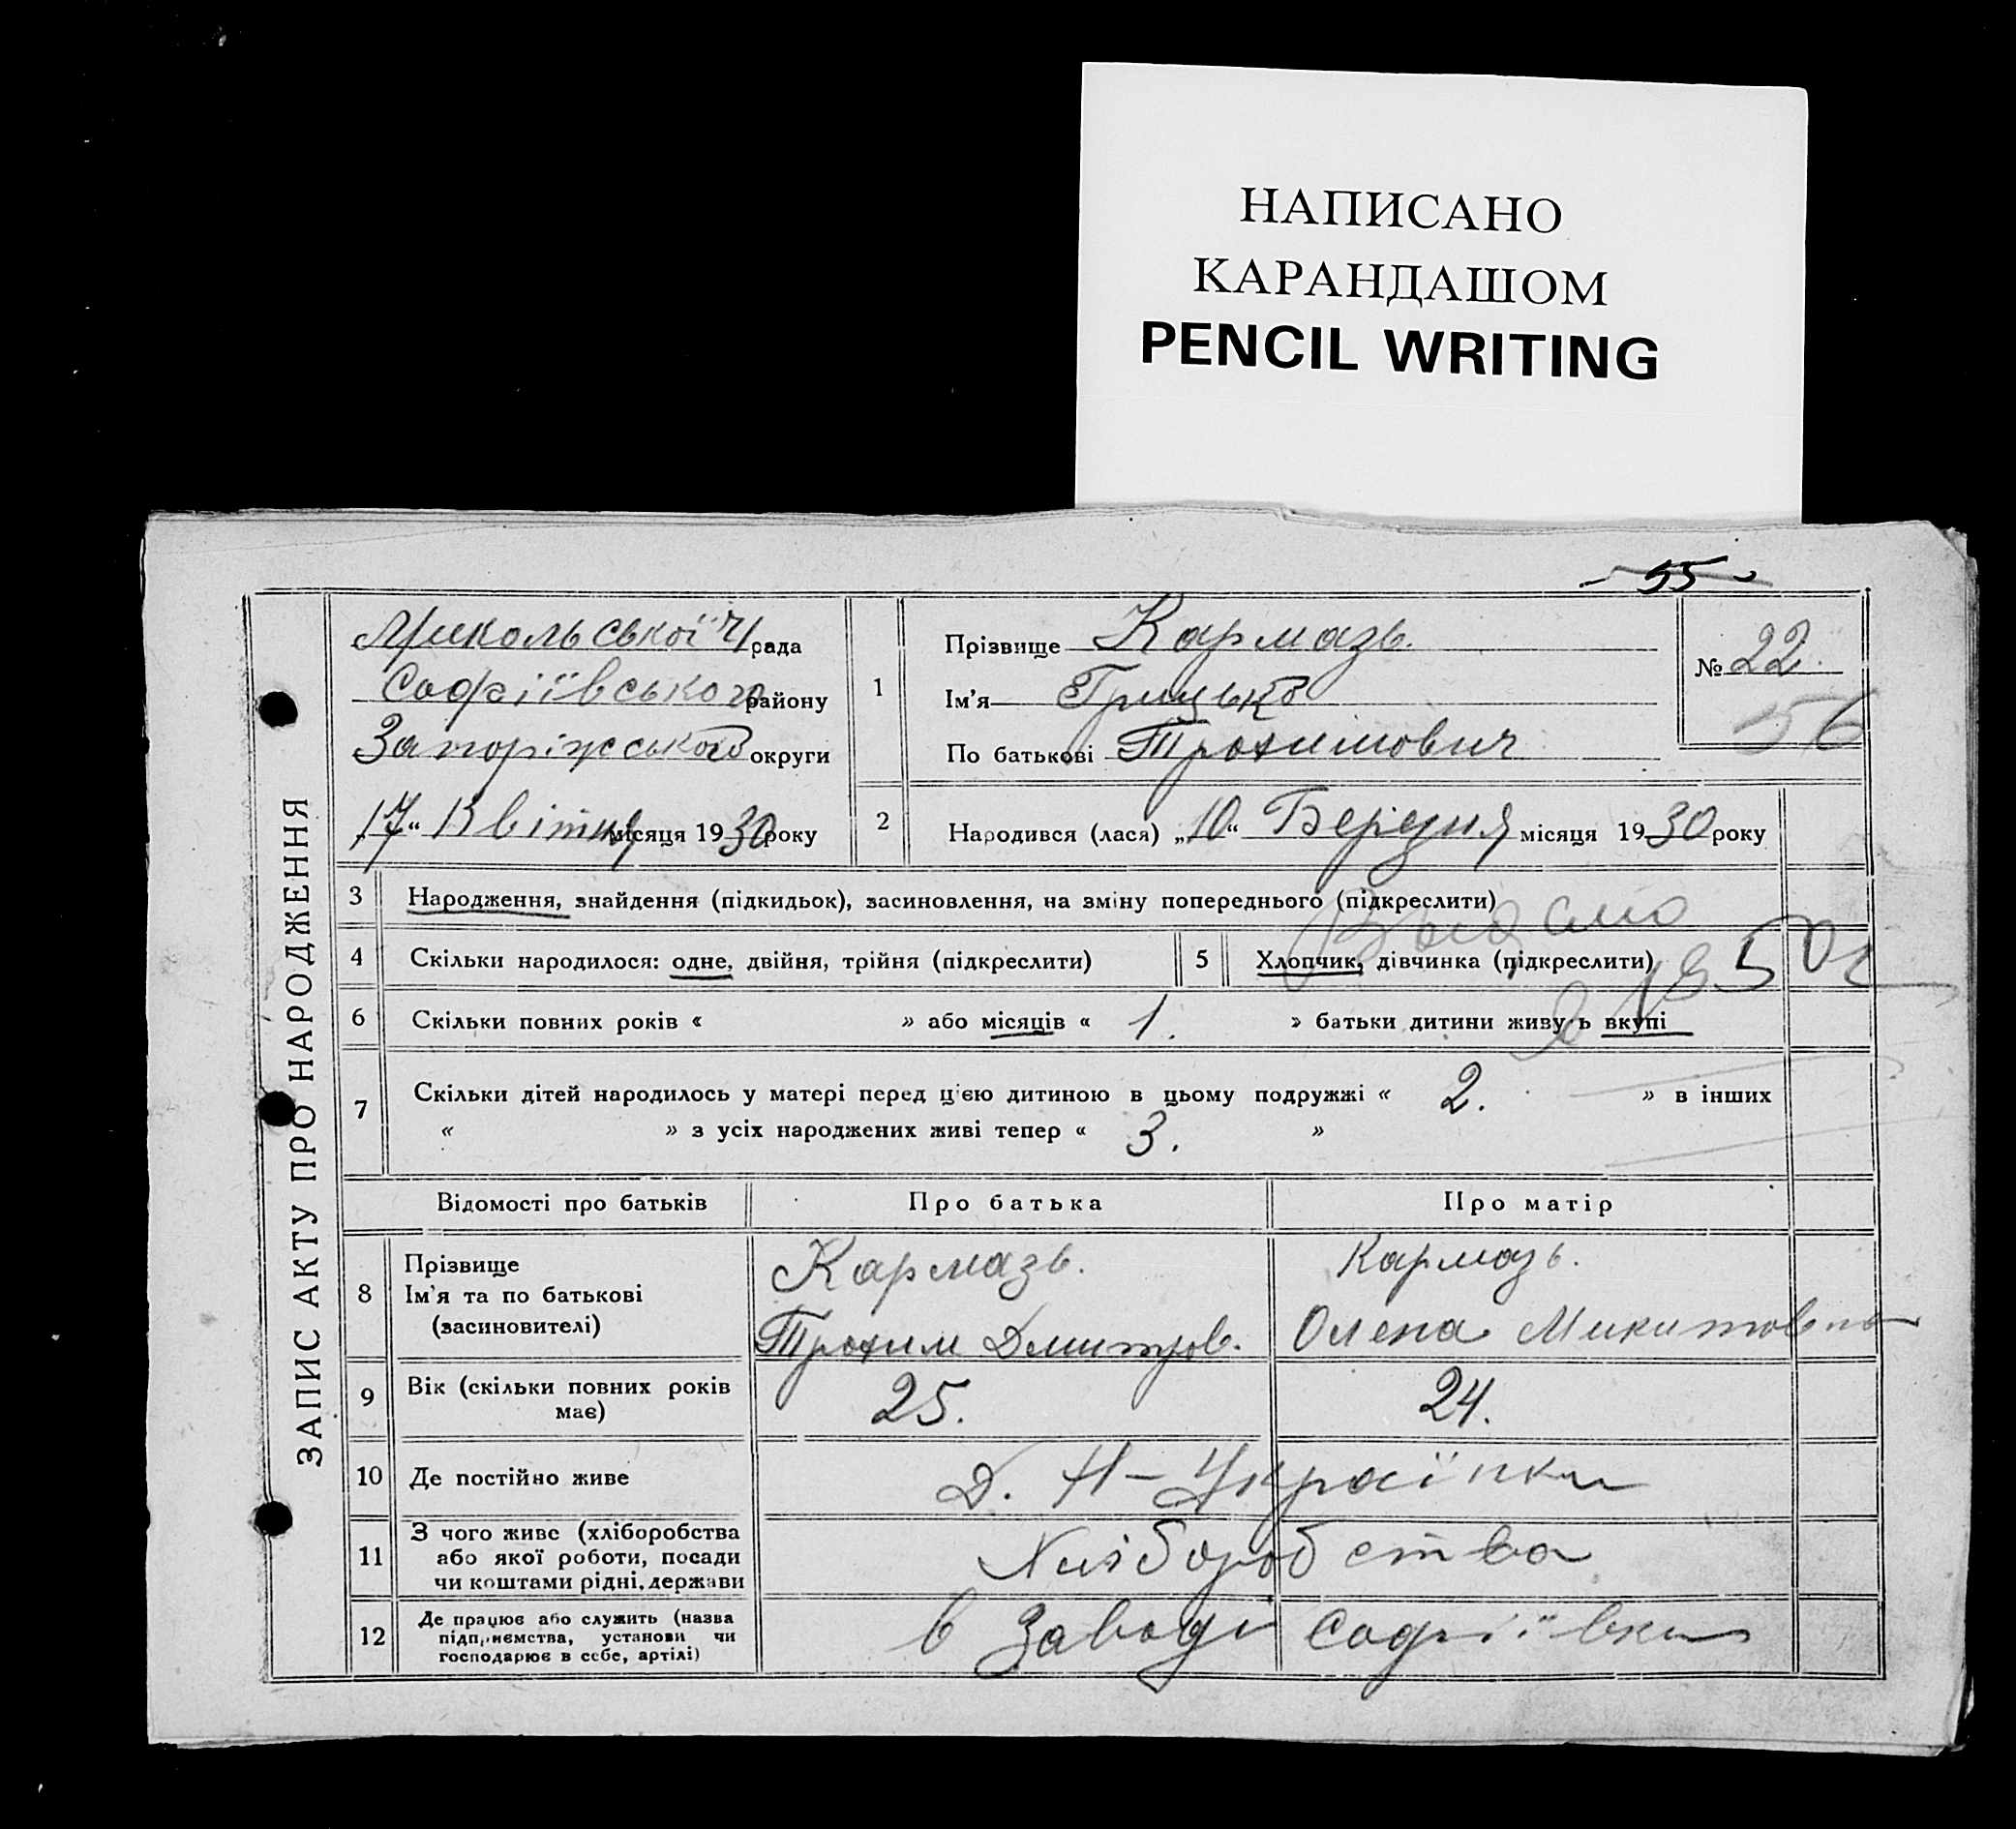 НАПИСАНО
КАРАНДАШОМ
PENCIL WRITING
- 55 -
ЗАПИС АКТУ ПРО НАРОДЖЕННЯ
Микольської рада
Софіївського району
Запоріжського округи
„17“ Квітня місяця 1930 року
1
Прізвище Кармазь.
Ім'я Грицько
По батькові Трохимович
№ 22.
56
2 Народився (лася) „10“ Берізня місяця 1930 року
3 Народження, знайдення (підкидьок), засиновлення, на зміну попереднього (підкреслити)
Выдано
4 Скільки народилося: одне, двійня, трійня (підкреслити) 5 Хлопчик, дівчинка (підкреслити)
6 Скільки повних років « » або місяців « 1. » батьки дитини живуть вкупі
7 Скільки дітей народилось у матері перед цією дитиною в цьому подружжі « 2. » в інших
« » з усіх народжених живі тепер « 3. »
Відомості про батьків Про батька Про матір
8 Прізвище Кармазь. Кармазь.
Ім'я та по батькові
(засиновителі) Трохим Дмитров. Олена Микитовна
9 Вік (скільки повних років має) 25. 24.
10 Де постійно живе Д. Н-Українки
11 З чого живе (хліборобства
або якої роботи, посади
чи коштами рідні, держави Хліборобства
12 Де працює або служить (назва
підприємства, установи чи
господарює в себе, артілі) в Заводі Софіївки